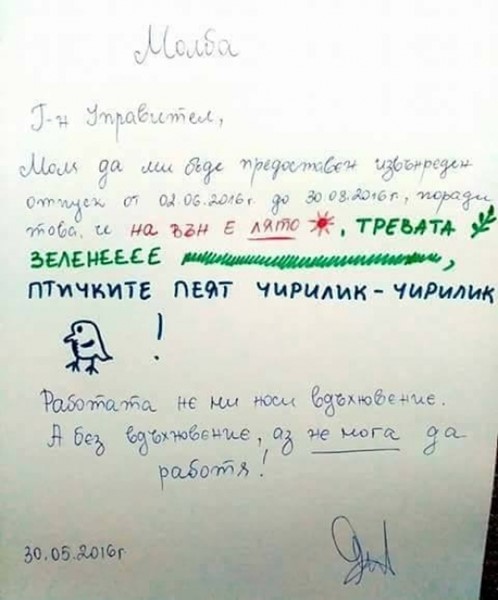 Молба
Г-н Управител,
Моля да ми бъде предоставен извънреден
отпуск от 02.06.2016г. до 30.08.2016г., поради
това, че на вън е лято, ТРЕВАТА
ЗЕЛЕНЕЕЕЕ,
ПТИЧКИТЕ ПЕЯТ ЧИРИЛИК - ЧИРИЛИК
!
Работата не ми носи вдъхновение.
А без вдъхновение, аз не мога да
работя!
30.05.2016г